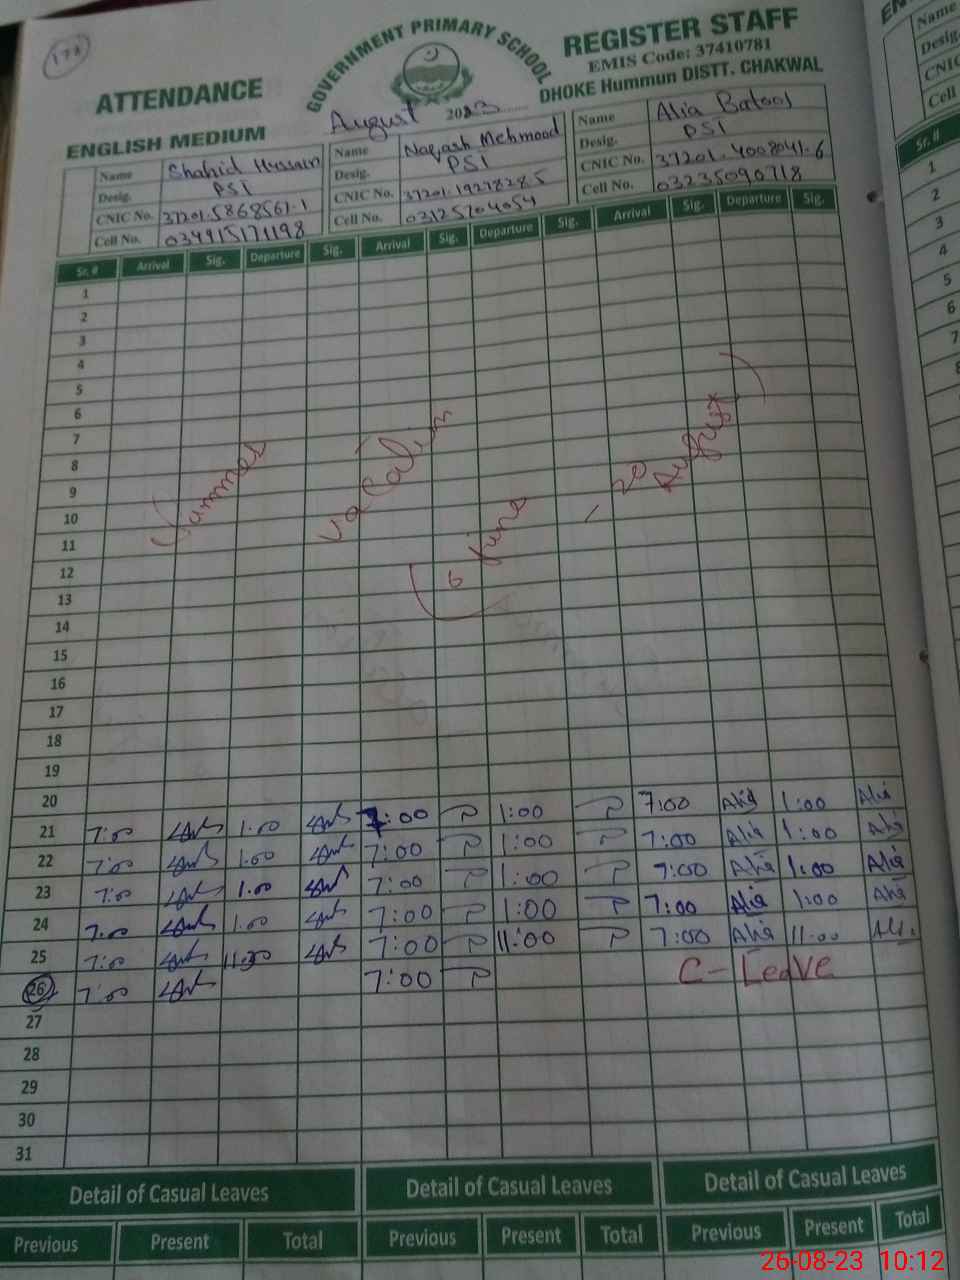 173
ATTENDANCE GOVERNMENT PRIMARY SCHOOL REGISTER STAFF
EMIS Code: 37410781
ENGLISH MEDIUM August 2023 DHOKE Hummun DISTT. CHAKWAL
Name Shahid Hussain Name Naqash Mehmood Name Alia Batool
Desig. PST Desig. PST Desig. PST
CNIC No. 37201.5868561-1 CNIC No. 37201.1927828.5 CNIC No. 37201.4008041-6
Cell No. 034915171198 Cell No. 03125704054 Cell No. 03235090718
Sr. # Arrival Sig. Departure Sig. Arrival Sig. Departure Sig. Arrival Sig. Departure Sig.
1
2
3
4
5
6
7
8
9
10
11
12
13
14
15
16
17
18
19
20
Summer Vacation
(6 June - 20 August)
21 7:00 1:00 7:00 1:00 7:00 Alia 1:00 Alia
22 7:00 1:00 7:00 1:00 7:00 Alia 1:00 Alia
23 7:00 1:00 7:00 1:00 7:00 Alia 1:00 Alia
24 7:00 1:00 7:00 1:00 7:00 Alia 1:00 Alia
25 7:00 7:00 11:00 7:00 Alia 11:00 Alia
26 7:00 7:00 C-Leave
27
28
29
30
31
Detail of Casual Leaves Detail of Casual Leaves Detail of Casual Leaves
Previous Present Total Previous Present Total Previous Present Total
EN
Name
Desig.
CNIC
Cell
Sr. #
1
2
3
4
5
6
7
26-08-23 10:12